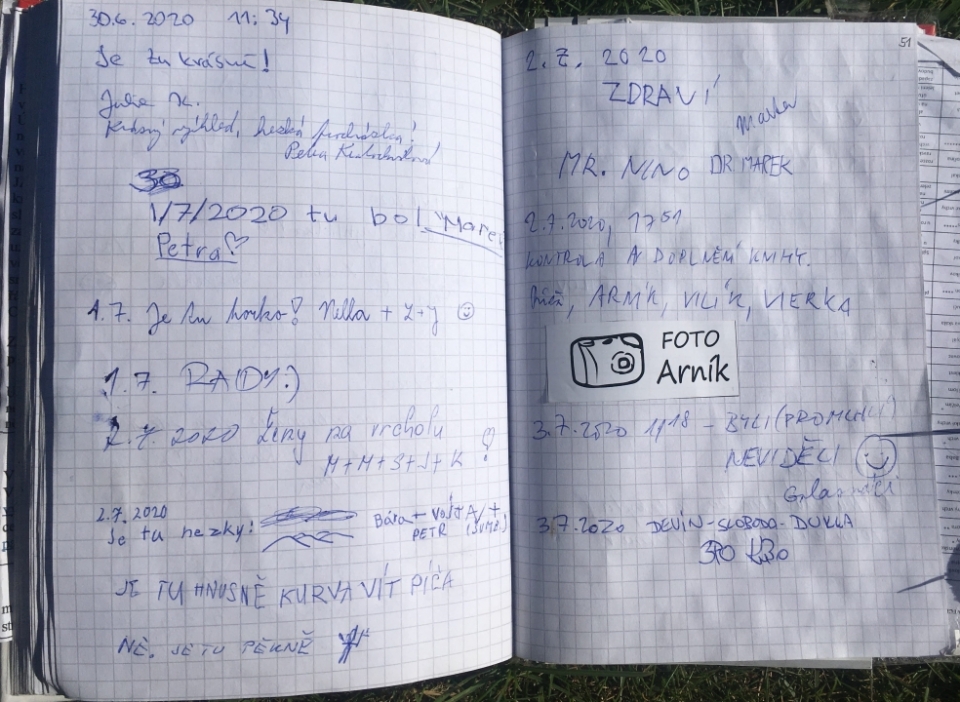 30.6.2020 11:34
Je tu krásně!
Julie K.
Krásný výhled, hezká procházka!
Petra
30
1/7/2020 tu bol Marek
Petra
1.7. Je tu horko! Nella + Z + J
1.7. RADY:)
2.7.2020 Ženy na vrcholu
M+M+S+J+K
2.7.2020
Je tu hezky!
Bára + VOJTA +
PETR
JE TU HNUSNĚ KURVA VÍT PÍČA
NE. JE TU PĚKNĚ
51
2.7.2020
ZDRAVÍ
Marka
MR. NINO DR MAREK
2.7.2020, 17 51
KONTROLA A DOPLNĚNÍ KNIHY.
ARNÍK, VILÍK, VIERKA
FOTO
Arník
3.7.2020 11 18 - BYLI (PROMLUVILI)
NEVIDĚLI
3.7.2020 DEVÍN-SLOBODA-DUKLA